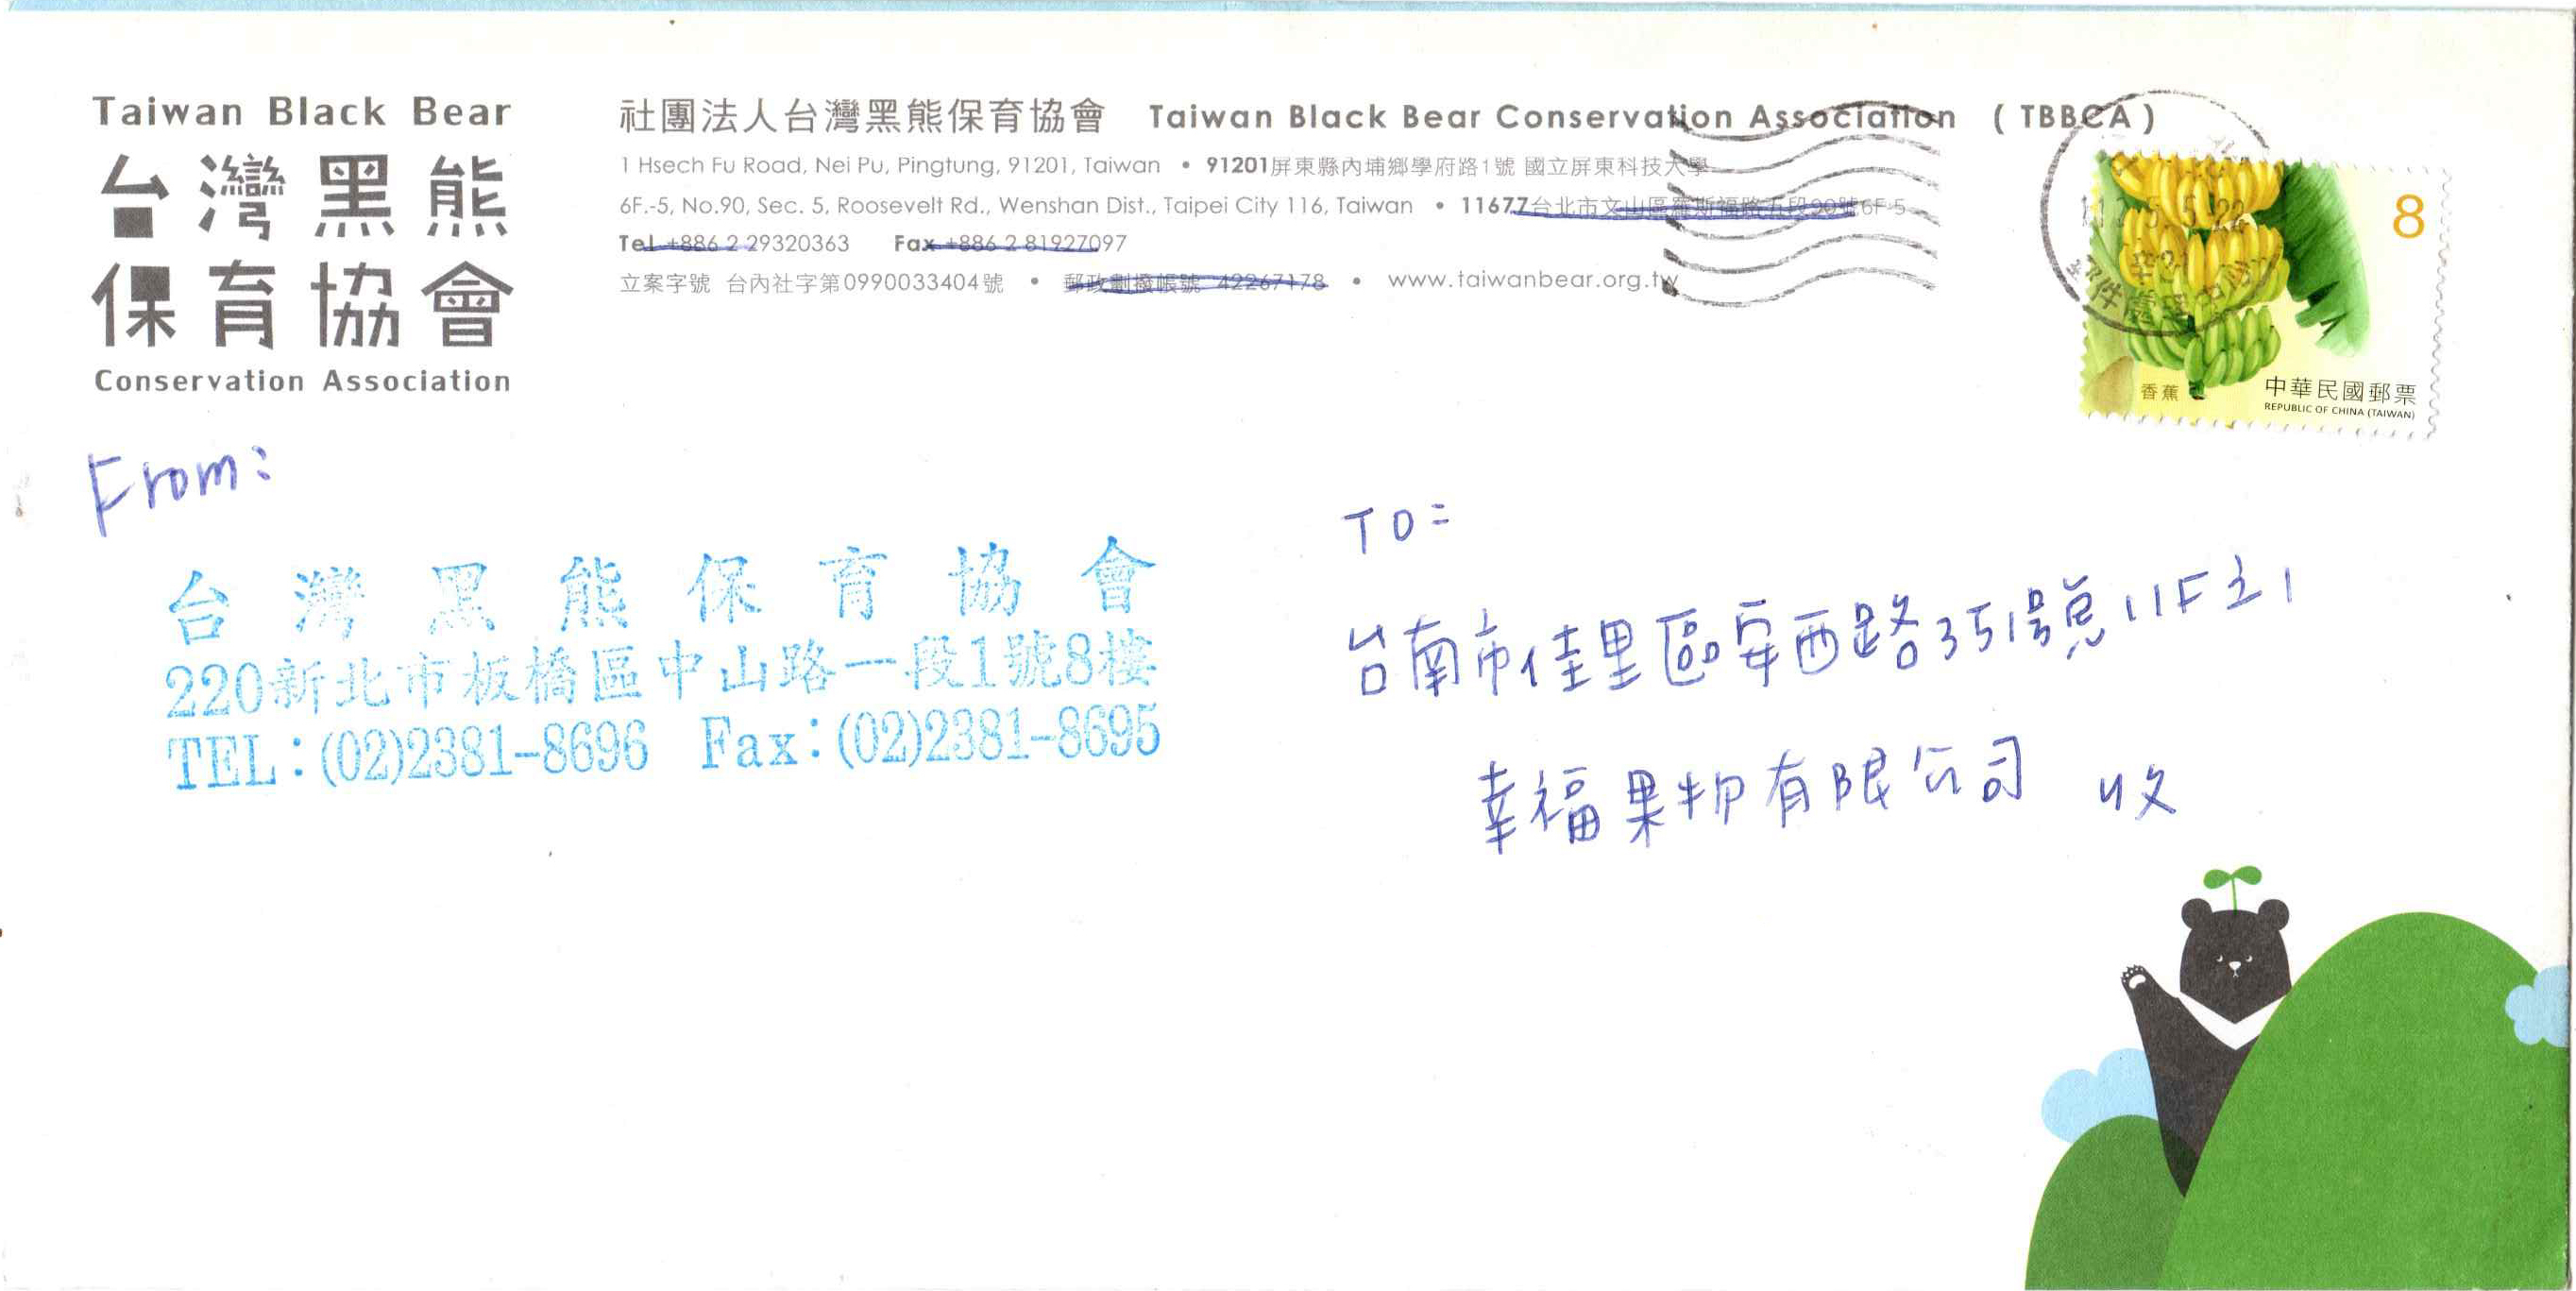 Taiwan Black Bear
台灣黑熊
保育協會
Conservation Association
社團法人台灣黑熊保育協會 Taiwan Black Bear Conservation Association (TBBCA)
1 Hsech Fu Road, Nei Pu, Pingtung, 91201, Taiwan • 91201屏東縣內埔鄉學府路1號 國立屏東科技大學
6F.-5, No.90, Sec. 5, Roosevelt Rd., Wenshan Dist., Taipei City 116, Taiwan • 11677台北市文山區羅斯福路五段90號6F-5
Tel +886 2 29320363 Fax +886 2 81927097
立案字號 台內社字第0990033404號 • 郵政劃撥帳號 42267178 • www.taiwanbear.org.tw
8
香蕉
中華民國郵票
REPUBLIC OF CHINA (TAIWAN)
From:
台灣黑熊保育協會
220新北市板橋區中山路一段1號8樓
TEL:(02)2381-8696 Fax:(02)2381-8695
TO:
台南市佳里區安西路351號11F之1
幸福果物有限公司 收